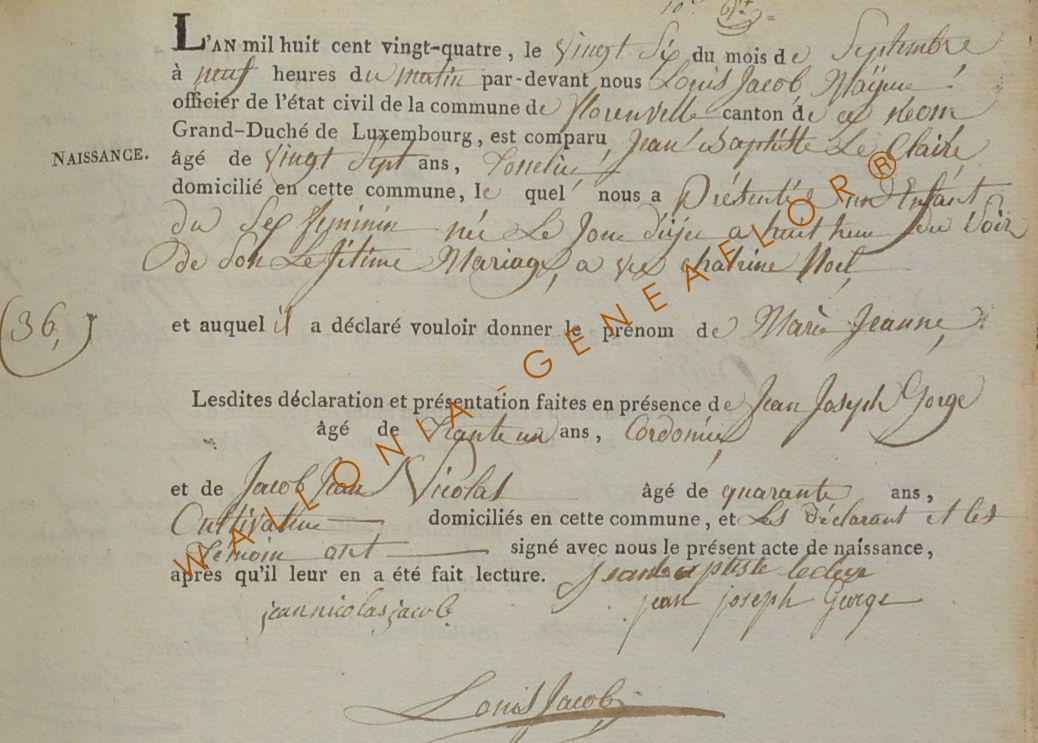 L'AN mil huit cent vingt-quatre, le vingt Six du mois de Septembre
à neuf heures du matin par-devant nous Louis Jacob, Maÿeur
officier de l'état civil de la commune de florenville canton de ce Nom
Grand-Duché de Luxembourg, est comparu Jean Baptiste Le Claire
NAISSANCE.
âgé de vingt Sept ans,
domicilié en cette commune, le quel nous a Présenté un Enfant
du Sex feminin née Le Jour d'ÿer a huit heur du Soir
de Son Lejitime Mariage, a vec Noel
(36,)
et auquel il a déclaré vouloir donner le prénom de Marie Jeanne,
Lesdites déclaration et présentation faites en présence de Jean Joseph Gorge
âgé de trante un ans, Cordonier,
et de Jacob Jean Nicolas âgé de quarante ans,
Cultivateur domiciliés en cette commune, et Les déclarant et les
témoin ont signé avec nous le présent acte de naissance,
après qu'il leur en a été fait lecture. jean baptiste lecler
jean nicolas jacob jean joseph Gorge
Louis Jacob
WALLONIA-GENEAFLOR®